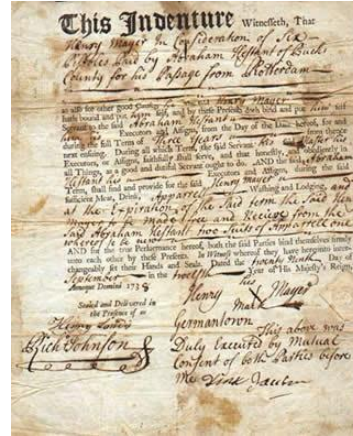 This Indenture Witnesseth, That
Henry Mayer In Consideration of Six
Pistoles Paid by Abraham Hestant of Bucks
County for his Passage from Rotterdam
as also for other good Causes, he the said Henry Mayer
hath bound and put him self, and by these Presents doth bind and put him self
Servant to the said Abraham Hestant
his Executors and Assigns, from the Day of the Date hereof, for and
during the full Term of Three Years from thence
next ensuing. During all which Term, the said Servant his said
Executors, or Assigns, faithfully shall serve, and that honestly, and obediently in
all Things, as a good and dutiful Servant ought to do. AND the said Abraham
Hestant his Executors and Assigns, during the said
Term, shall find and provide for the said Henry Mayer
sufficient Meat, Drink, Apparrel Washing and Lodging, and
at the Expiration of the said term the said Henry
Mayer to be made free and Receive from the
said Abraham Hestant two Suits of Apparrell one
whereof to be new
AND for the true Performance hereof, both the said Parties bind themselves firmly
unto each other by these Presents. In Witness whereof they have hereunto inter-
changeably set their Hands and Seals. Dated the twenty Ninth Day of
September in the twelfth Year of His Majesty's Reign,
Annoque Domini 1738
Sealed and Delivered in
the Presence of us
his
Henry Mayer
Mark
Rich Johnson
Germantown
This above was
Duly Executed by Mutual
Consent of both Parties before
me